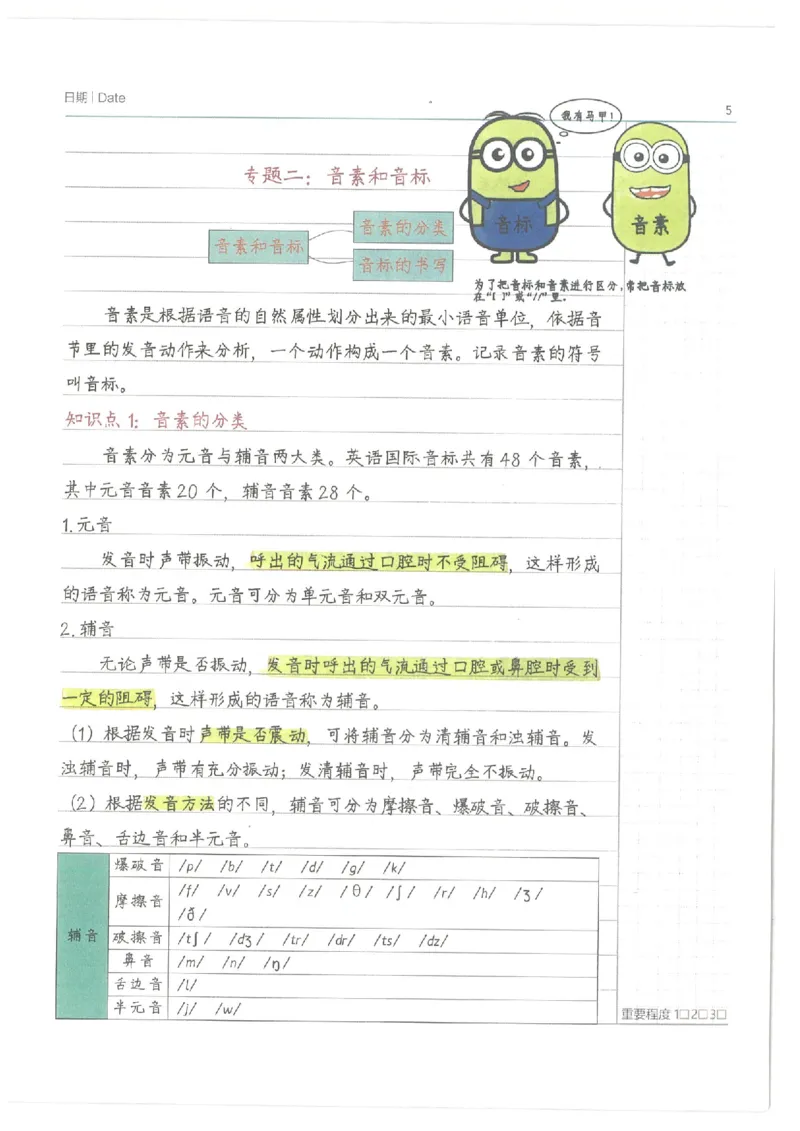 日期 | Date
5
我有马甲!
专题二：音素和音标
音标
音素
音素和音标
音素的分类
音标的书写
为了把音标和音素进行区分,常把音标放
在“[ ]”或“//”里.
音素是根据语音的自然属性划分出来的最小语音单位，依据音
节里的发音动作来分析，一个动作构成一个音素。记录音素的符号
叫音标。
知识点 1：音素的分类
音素分为元音与辅音两大类。英语国际音标共有 48 个音素，
其中元音音素 20 个，辅音音素 28 个。
1.元音
发音时声带振动，呼出的气流通过口腔时不受阻碍，这样形成
的语音称为元音。元音可分为单元音和双元音。
2.辅音
无论声带是否振动，发音时呼出的气流通过口腔或鼻腔时受到
一定的阻碍，这样形成的语音称为辅音。
（1）根据发音时声带是否震动，可将辅音分为清辅音和浊辅音。发
浊辅音时，声带有充分振动；发清辅音时，声带完全不振动。
（2）根据发音方法的不同，辅音可分为摩擦音、爆破音、破擦音、
鼻音、舌边音和半元音。
辅音
爆破音 /p/ /b/ /t/ /d/ /g/ /k/
摩擦音 /f/ /v/ /s/ /z/ /θ/ /ʃ/ /r/ /h/ /ʒ/
/ð/
破擦音 /tʃ/ /dʒ/ /tr/ /dr/ /ts/ /dz/
鼻音 /m/ /n/ /ŋ/
舌边音 /l/
半元音 /j/ /w/
重要程度 1□2□3□